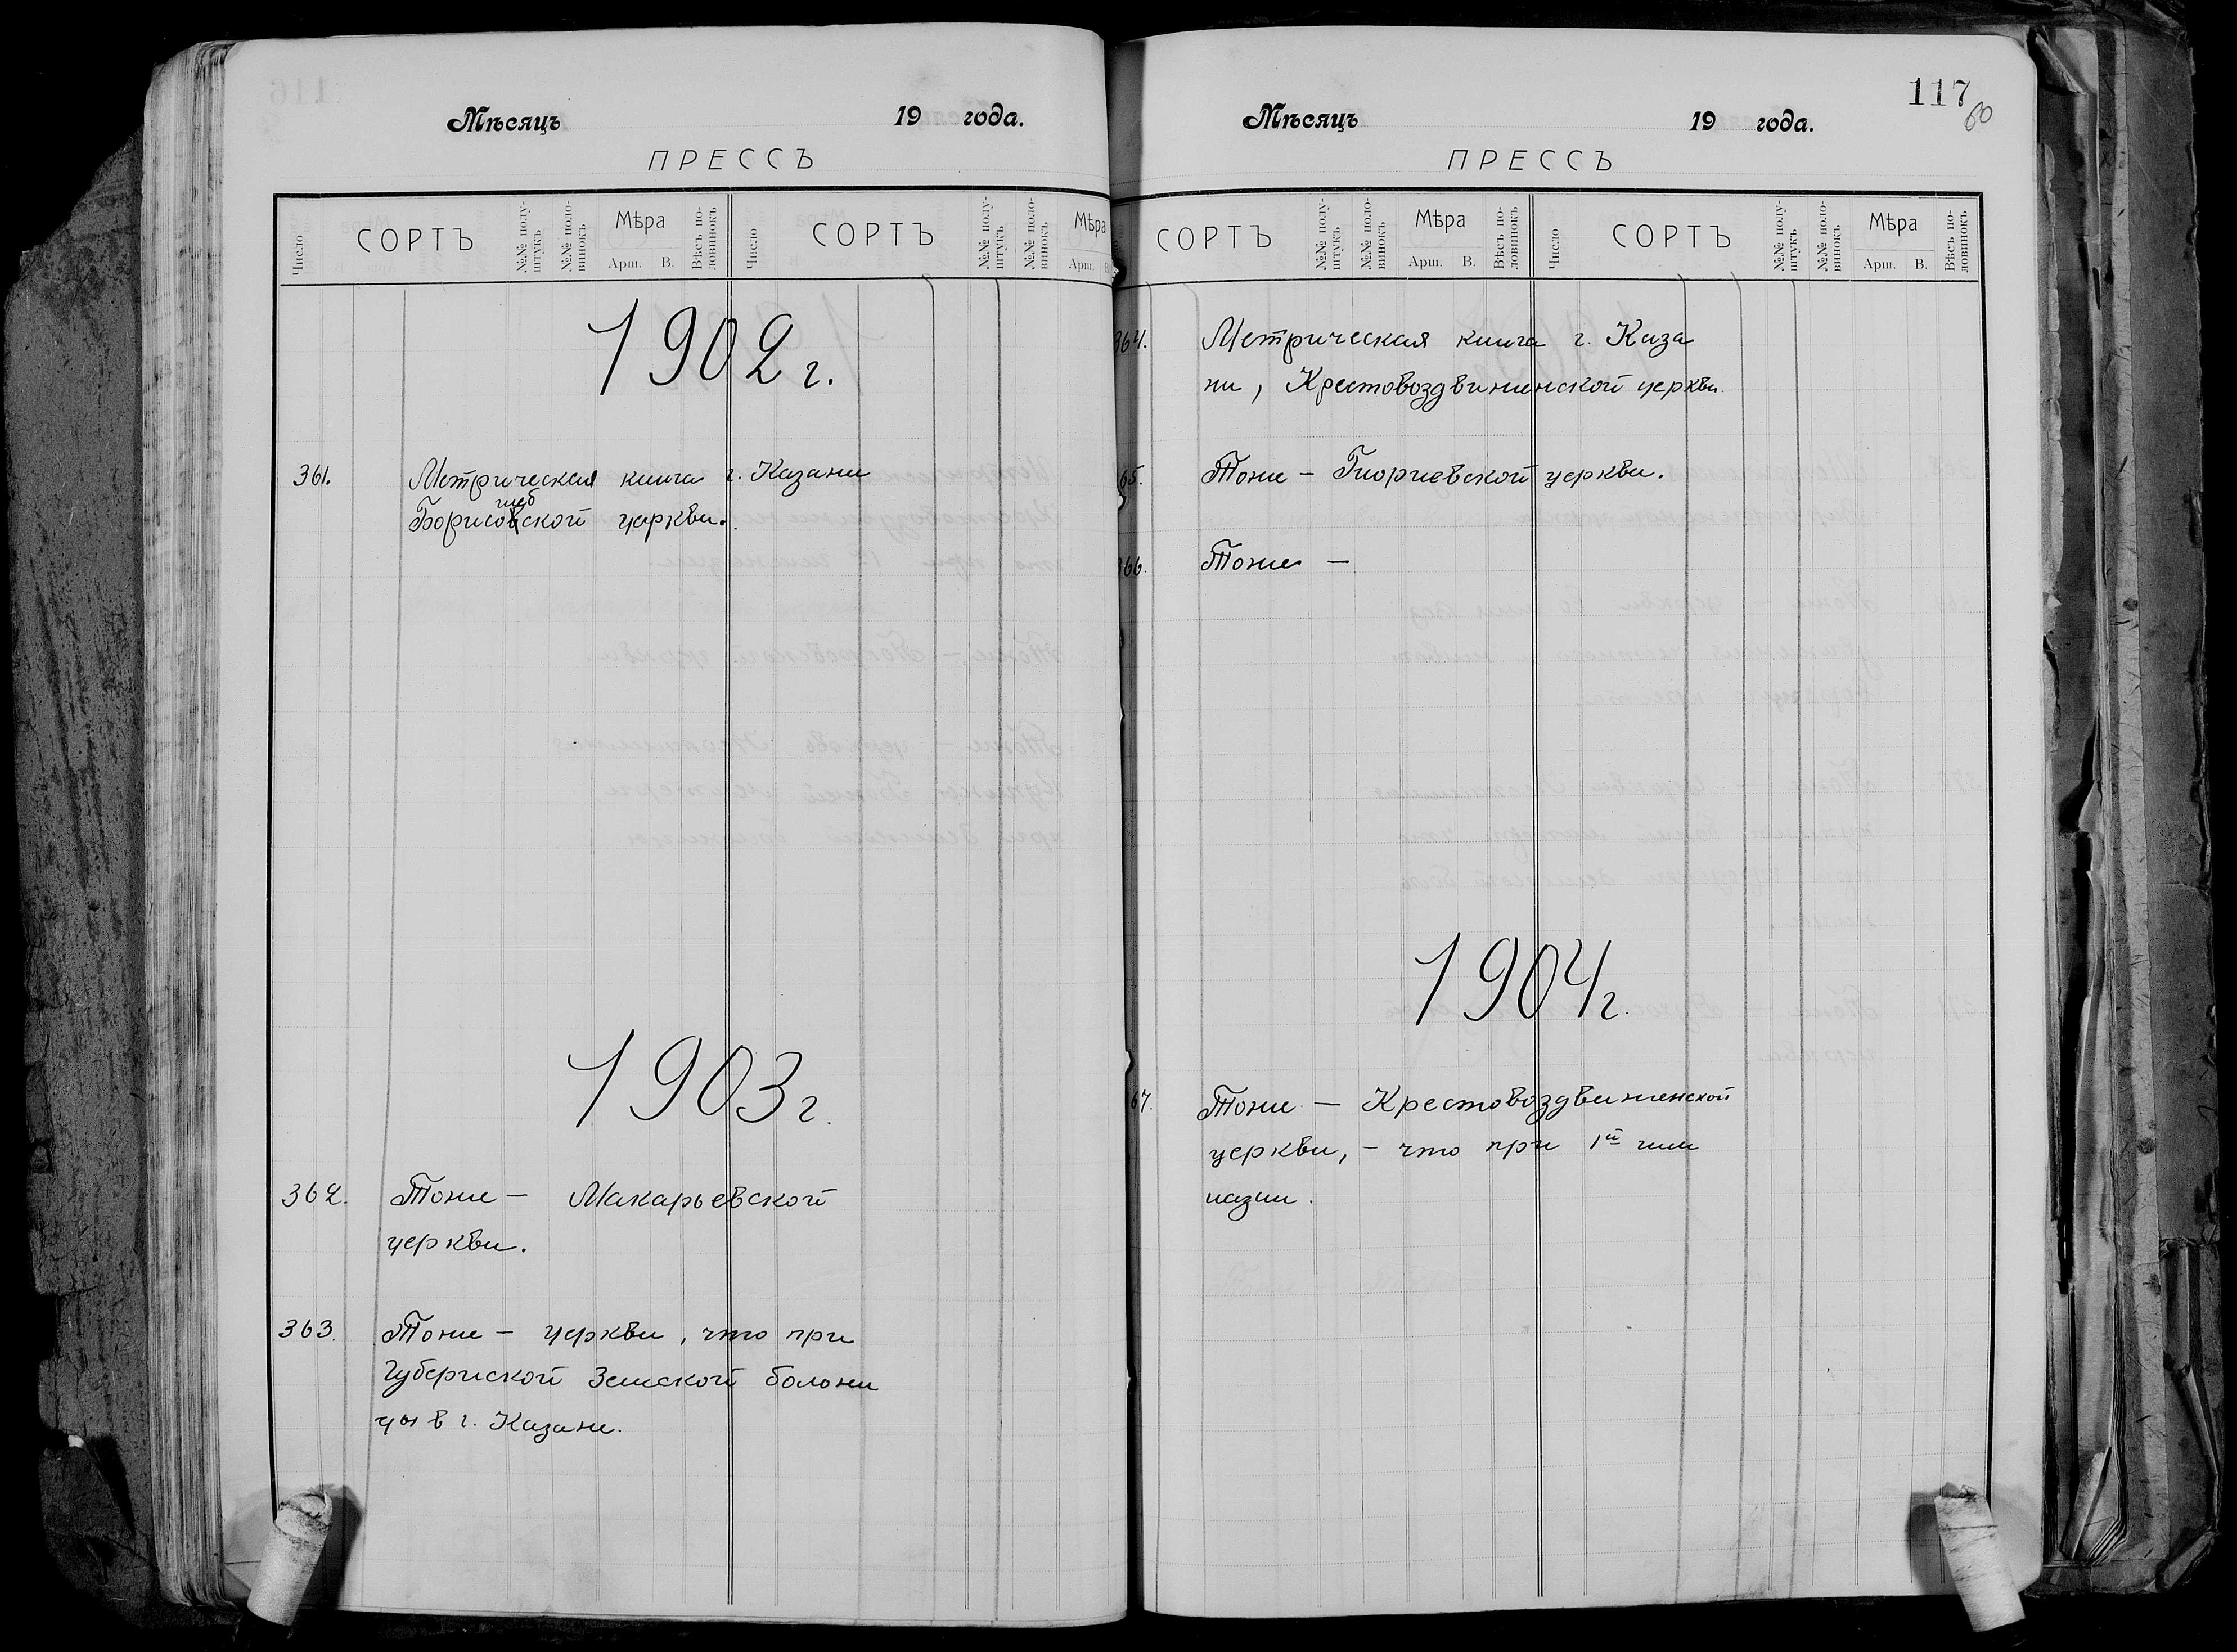 Мѣсяцъ 19 года.
ПРЕССЪ
Число СОРТЪ №№ полуштукъ №№ половинокъ Мѣра Арш. В. Вѣсъ половинокъ Число СОРТЪ №№ полуштукъ №№ половинокъ Мѣра Арш. В.
1902 г.
361. Метрическая книга г. Казани
глеб
Борисовской церкви.
1903 г.
362. Тоже — Макарьевской
церкви.
363. Тоже — церкви, что при
Губернской Земской больни
цы в г. Казани.
117
60
Мѣсяцъ 19 года.
ПРЕССЪ
СОРТЪ №№ полуштукъ №№ половинокъ Мѣра Арш. В. Вѣсъ половинокъ Число СОРТЪ №№ полуштукъ №№ половинокъ Мѣра Арш. В. Вѣсъ половинокъ
364. Метрическая книга г. Каза
ни, Крестовоздвиженской церкви.
65. Тоже — Георгиевской церкви.
366. Тоже —
1904 г.
67. Тоже — Крестовоздвиженской
церкви, — что при 1й гим
назии.